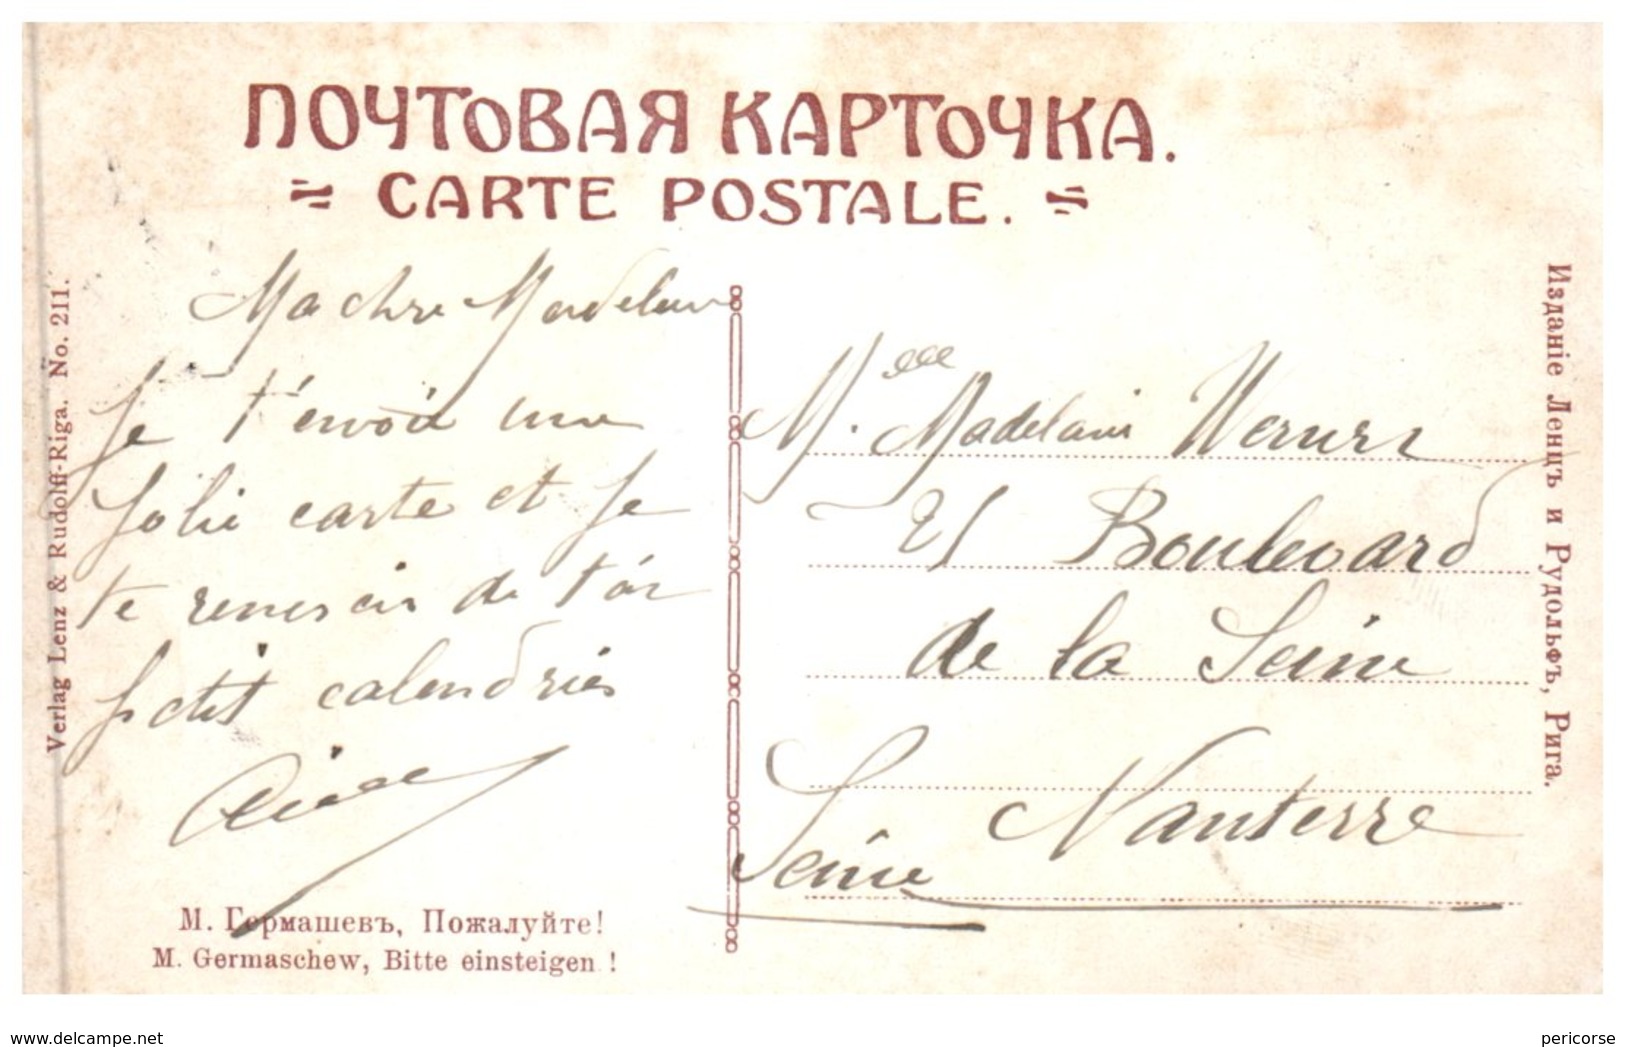 ПОЧТОВАЯ КАРТОЧКА.
CARTE POSTALE.
Ma chre Madelaine
Je t'envoie une
Jolie carte et Je
te renercie de ton
petit calendries
Mlle Madelaine
21 Boulevard
de la Seine
Nanterre
Seine
М. Гермашевъ, Пожалуйте!
M. Germaschew, Bitte einsteigen!
Verlag Lenz & Rudolff-Riga. No. 211.
Изданіе Ленцъ и Рудольфъ, Рига.
www.delcampe.net
pericorse